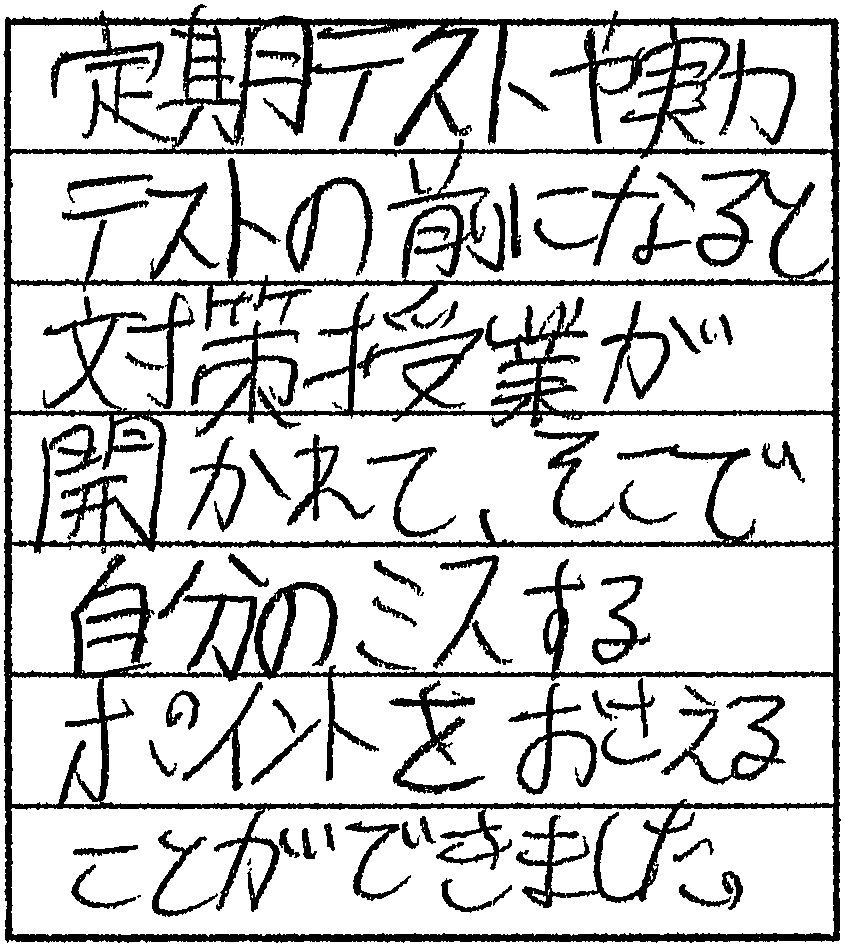 定期テストや実力
テストの前になると
対策授業が
開かれて、そこで
自分のミスする
ポイントをおさえる
ことができました。